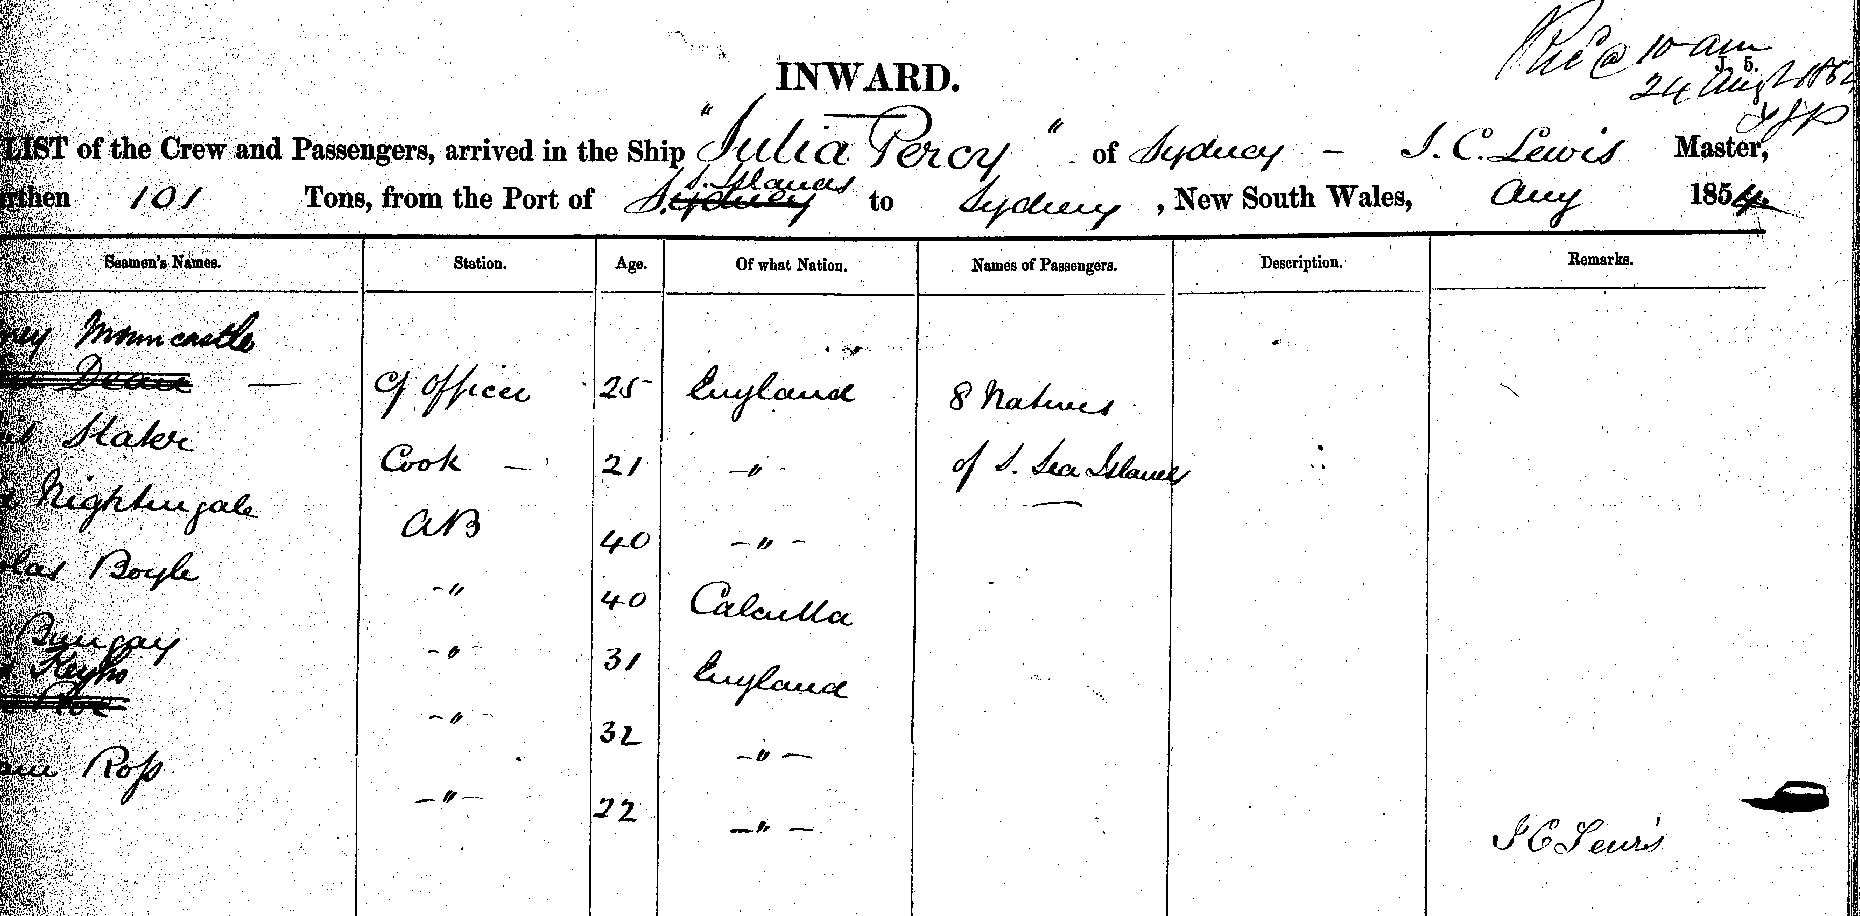 Rec @ 10 am
J. 5.
24 Augt 185
INWARD.
LIST of the Crew and Passengers, arrived in the Ship "Julia Percy" of Sydney - J. C. Lewis Master,
rthen 101 Tons, from the Port of S. Islands Sydney to Sydney, New South Wales, Aug 1854
Seamen's Names. Station. Age. Of what Nation. Names of Passengers. Description. Remarks.
ney Mouncastle
Deane — Cf Officer 25 England 8 Natives
Slater Cook — 21 — " — of S. Sea Islands
Nightingale AB 40 — " —
olas Boyle — " 40 Calcutta
Bungay — " — 31 England
Keyho
— " — 32 — " —
Ross — " — 22 — " —
J C Lewis